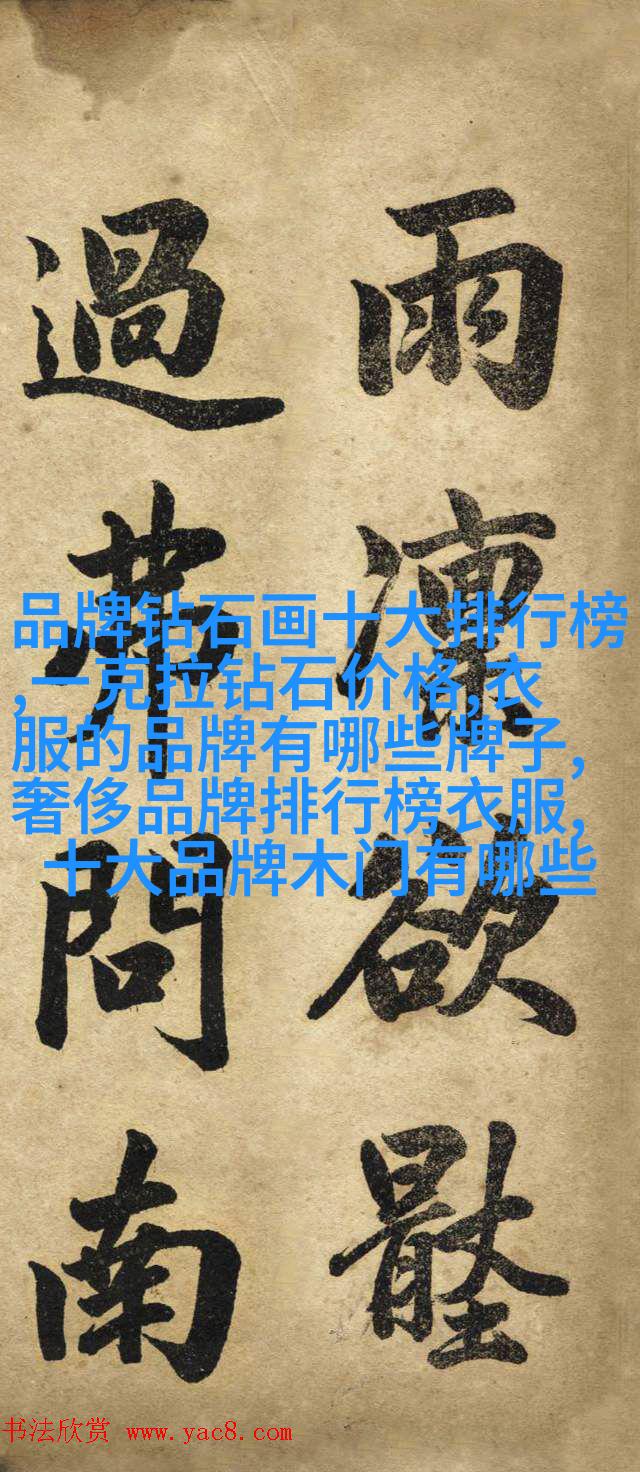 雨欲
過問南
品牌钻石画十大排行榜
,一克拉钻石价格,衣
服的品牌有哪些牌子,
奢侈品牌排行榜衣服,
十大品牌木门有哪些
书法欣赏 www.yac8.com